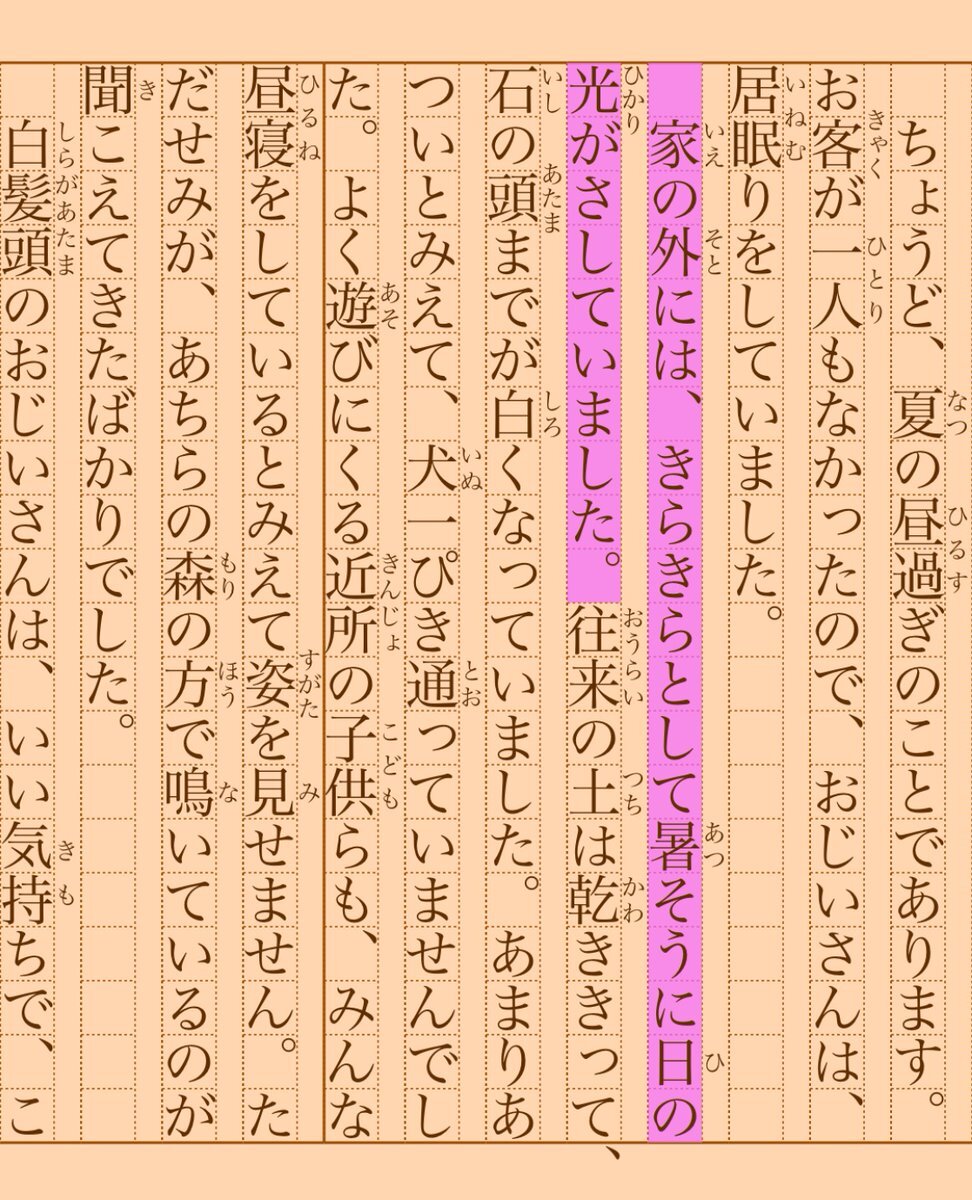 ちょうど、夏の昼過ぎのことであります。
お客が一人もなかったので、おじいさんは、
居眠りをしていました。
家の外には、きらきらとして暑そうに日の
光がさしていました。往来の土は乾ききって、
石の頭までが白くなっていました。あまりあ
ついとみえて、犬一ぴき通っていませんでし
た。よく遊びにくる近所の子供らも、みんな
昼寝をしているとみえて姿を見せません。た
だせみが、あちらの森の方で鳴いているのが
聞こえてきたばかりでした。
白髪頭のおじいさんは、いい気持ちで、こ